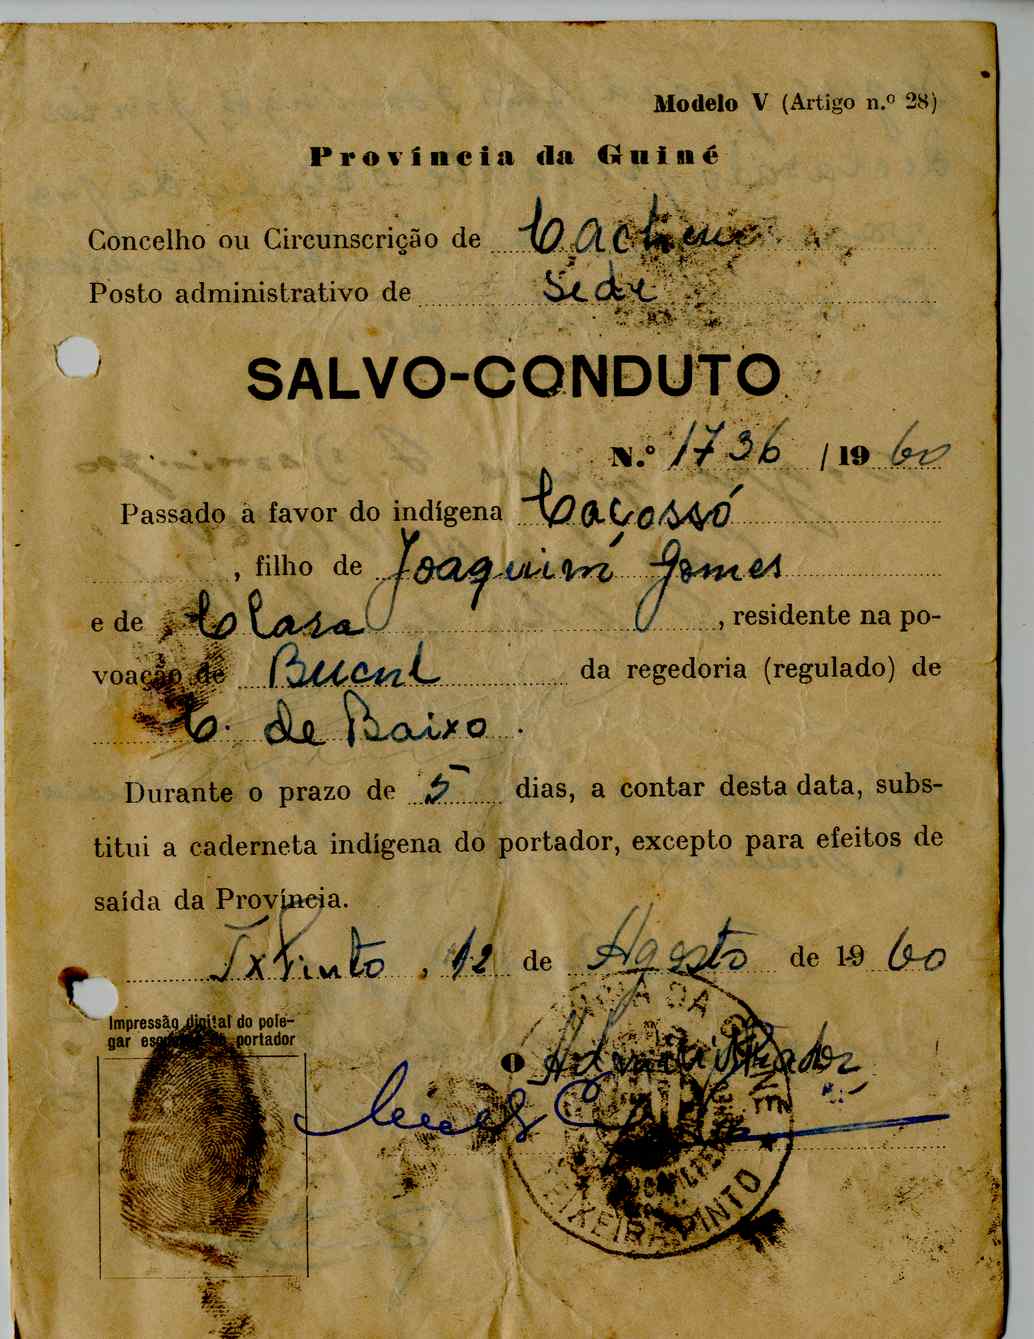 Modelo V (Artigo n.º 28)
Província da Guiné
Concelho ou Circunscrição de Cacheu
Posto administrativo de Sede
SALVO-CONDUTO
N.º 1736 / 19 60
Passado a favor do indígena Caçossó
, filho de Joaquim Gomes
e de Clara , residente na po-
voação de Bucul da regedoria (regulado) de
C. de Baixo .
Durante o prazo de 5 dias, a contar desta data, subs-
titui a caderneta indígena do portador, excepto para efeitos de
saída da Província.
TxPinto , 12 de Agosto de 19 60
Impressão digital do pole-
gar esquerdo do portador
O Administrador
TEIXEIRA PINTO